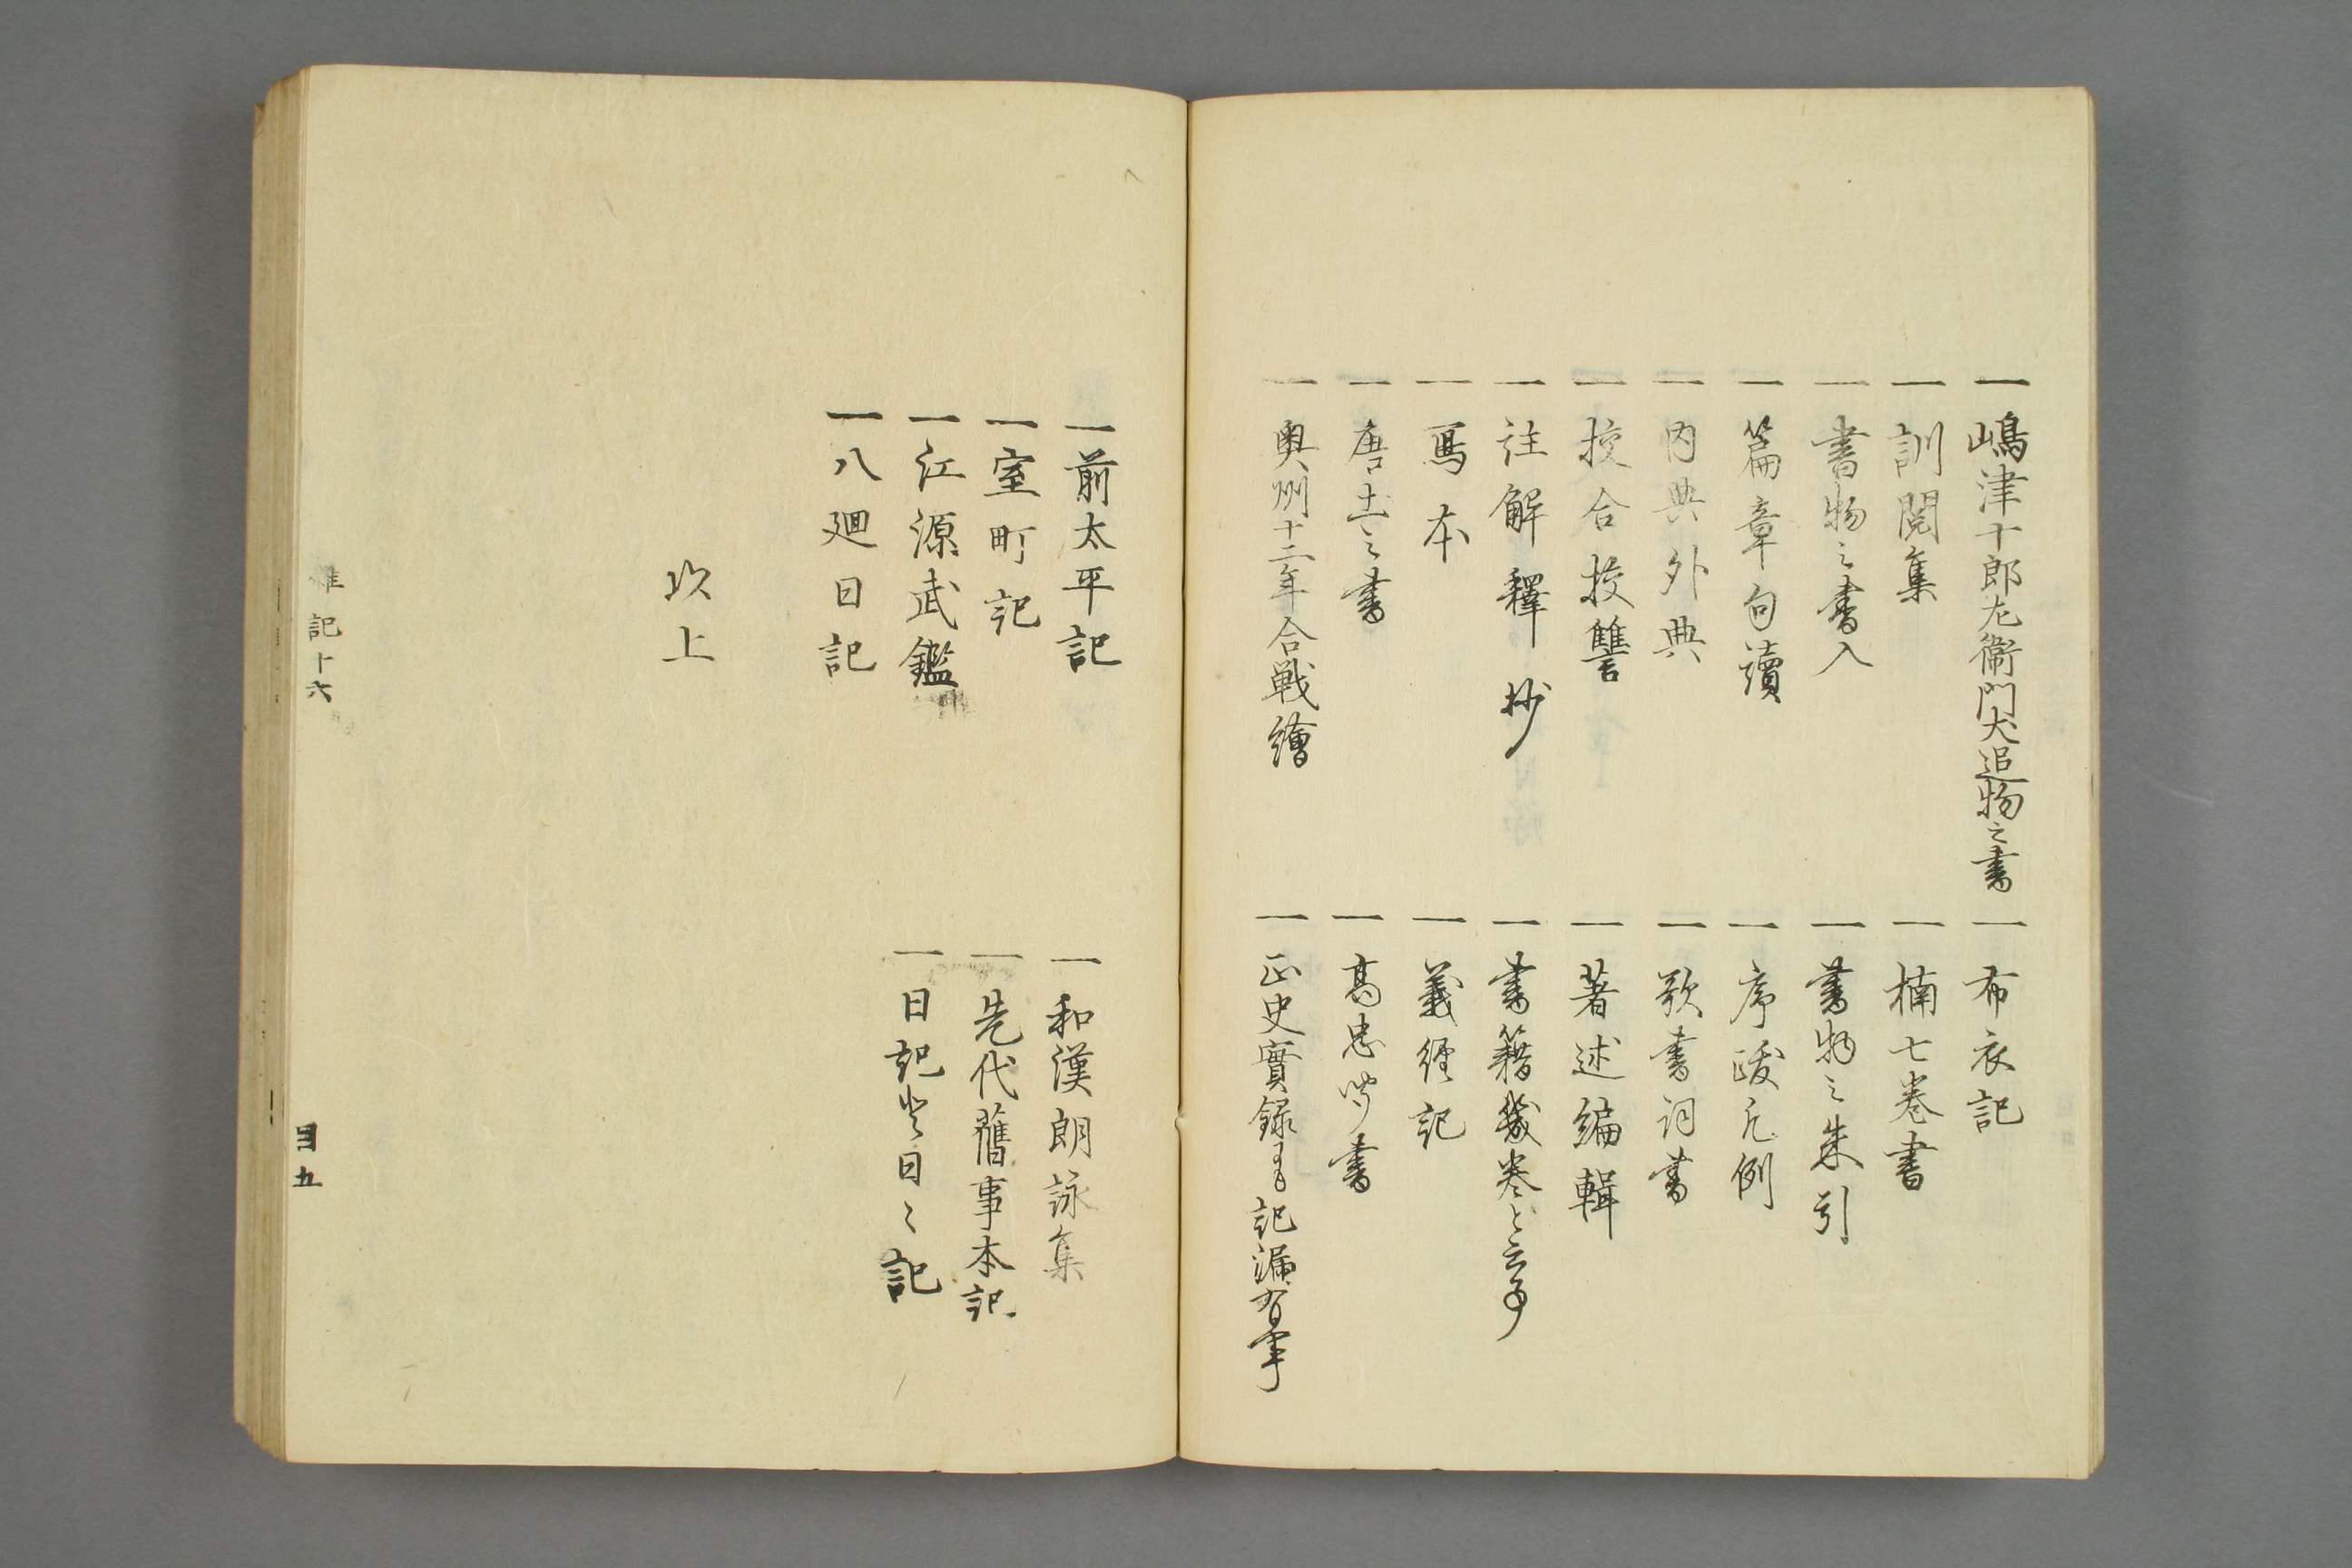 一嶋津十郎左衞門犬追物之書
一布衣記
一訓閲集
一楠七巻書
一書物之書入
一書物之朱引
一篇章句讀
一序跋凡例
一内典外典
一歌書詞書
一挍合挍讐
一著述編輯
一註解釋抄
一書籍幾巻と云事
一寫本
一義経記
一唐土之書
一髙忠聞書
一奥州十二年合戦繪
一正史實録にも記漏有事
一前太平記
一和漢朗詠集
一室町記
一先代舊事本記
一江源武鑑
一日記と日々記
一八廻日記
以上
記十六
目五